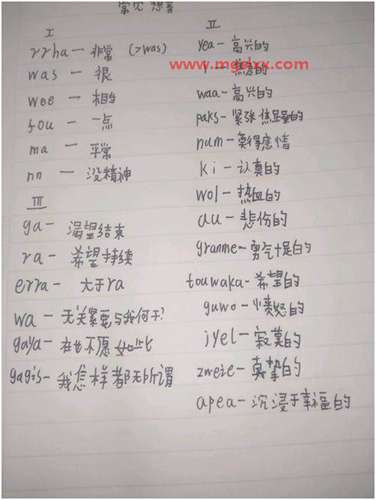 常见想音
I
rrha — 非常 (>was)
was — 很
wee — 相当
fou — 一点
ma — 平常
nn — 没精神
III
ga — 渴望结束
ra — 希望持续
erra — 大于ra
wa — 无关紧要与我何干?
gaya — 在也不愿如此
gagis — 我怎样都无所谓
II
yea — 高兴的
www.mgdxx.com
waa — 高兴的
paks — 紧张焦虑的
num — 莫得感情
ki — 认真的
wol — 热血的
au — 悲伤的
granme — 勇气十足的
touwaka — 希望的
guwo — 愤怒的
jyel — 寂寞的
zweie — 真挚的
apea — 沉浸于幸福的